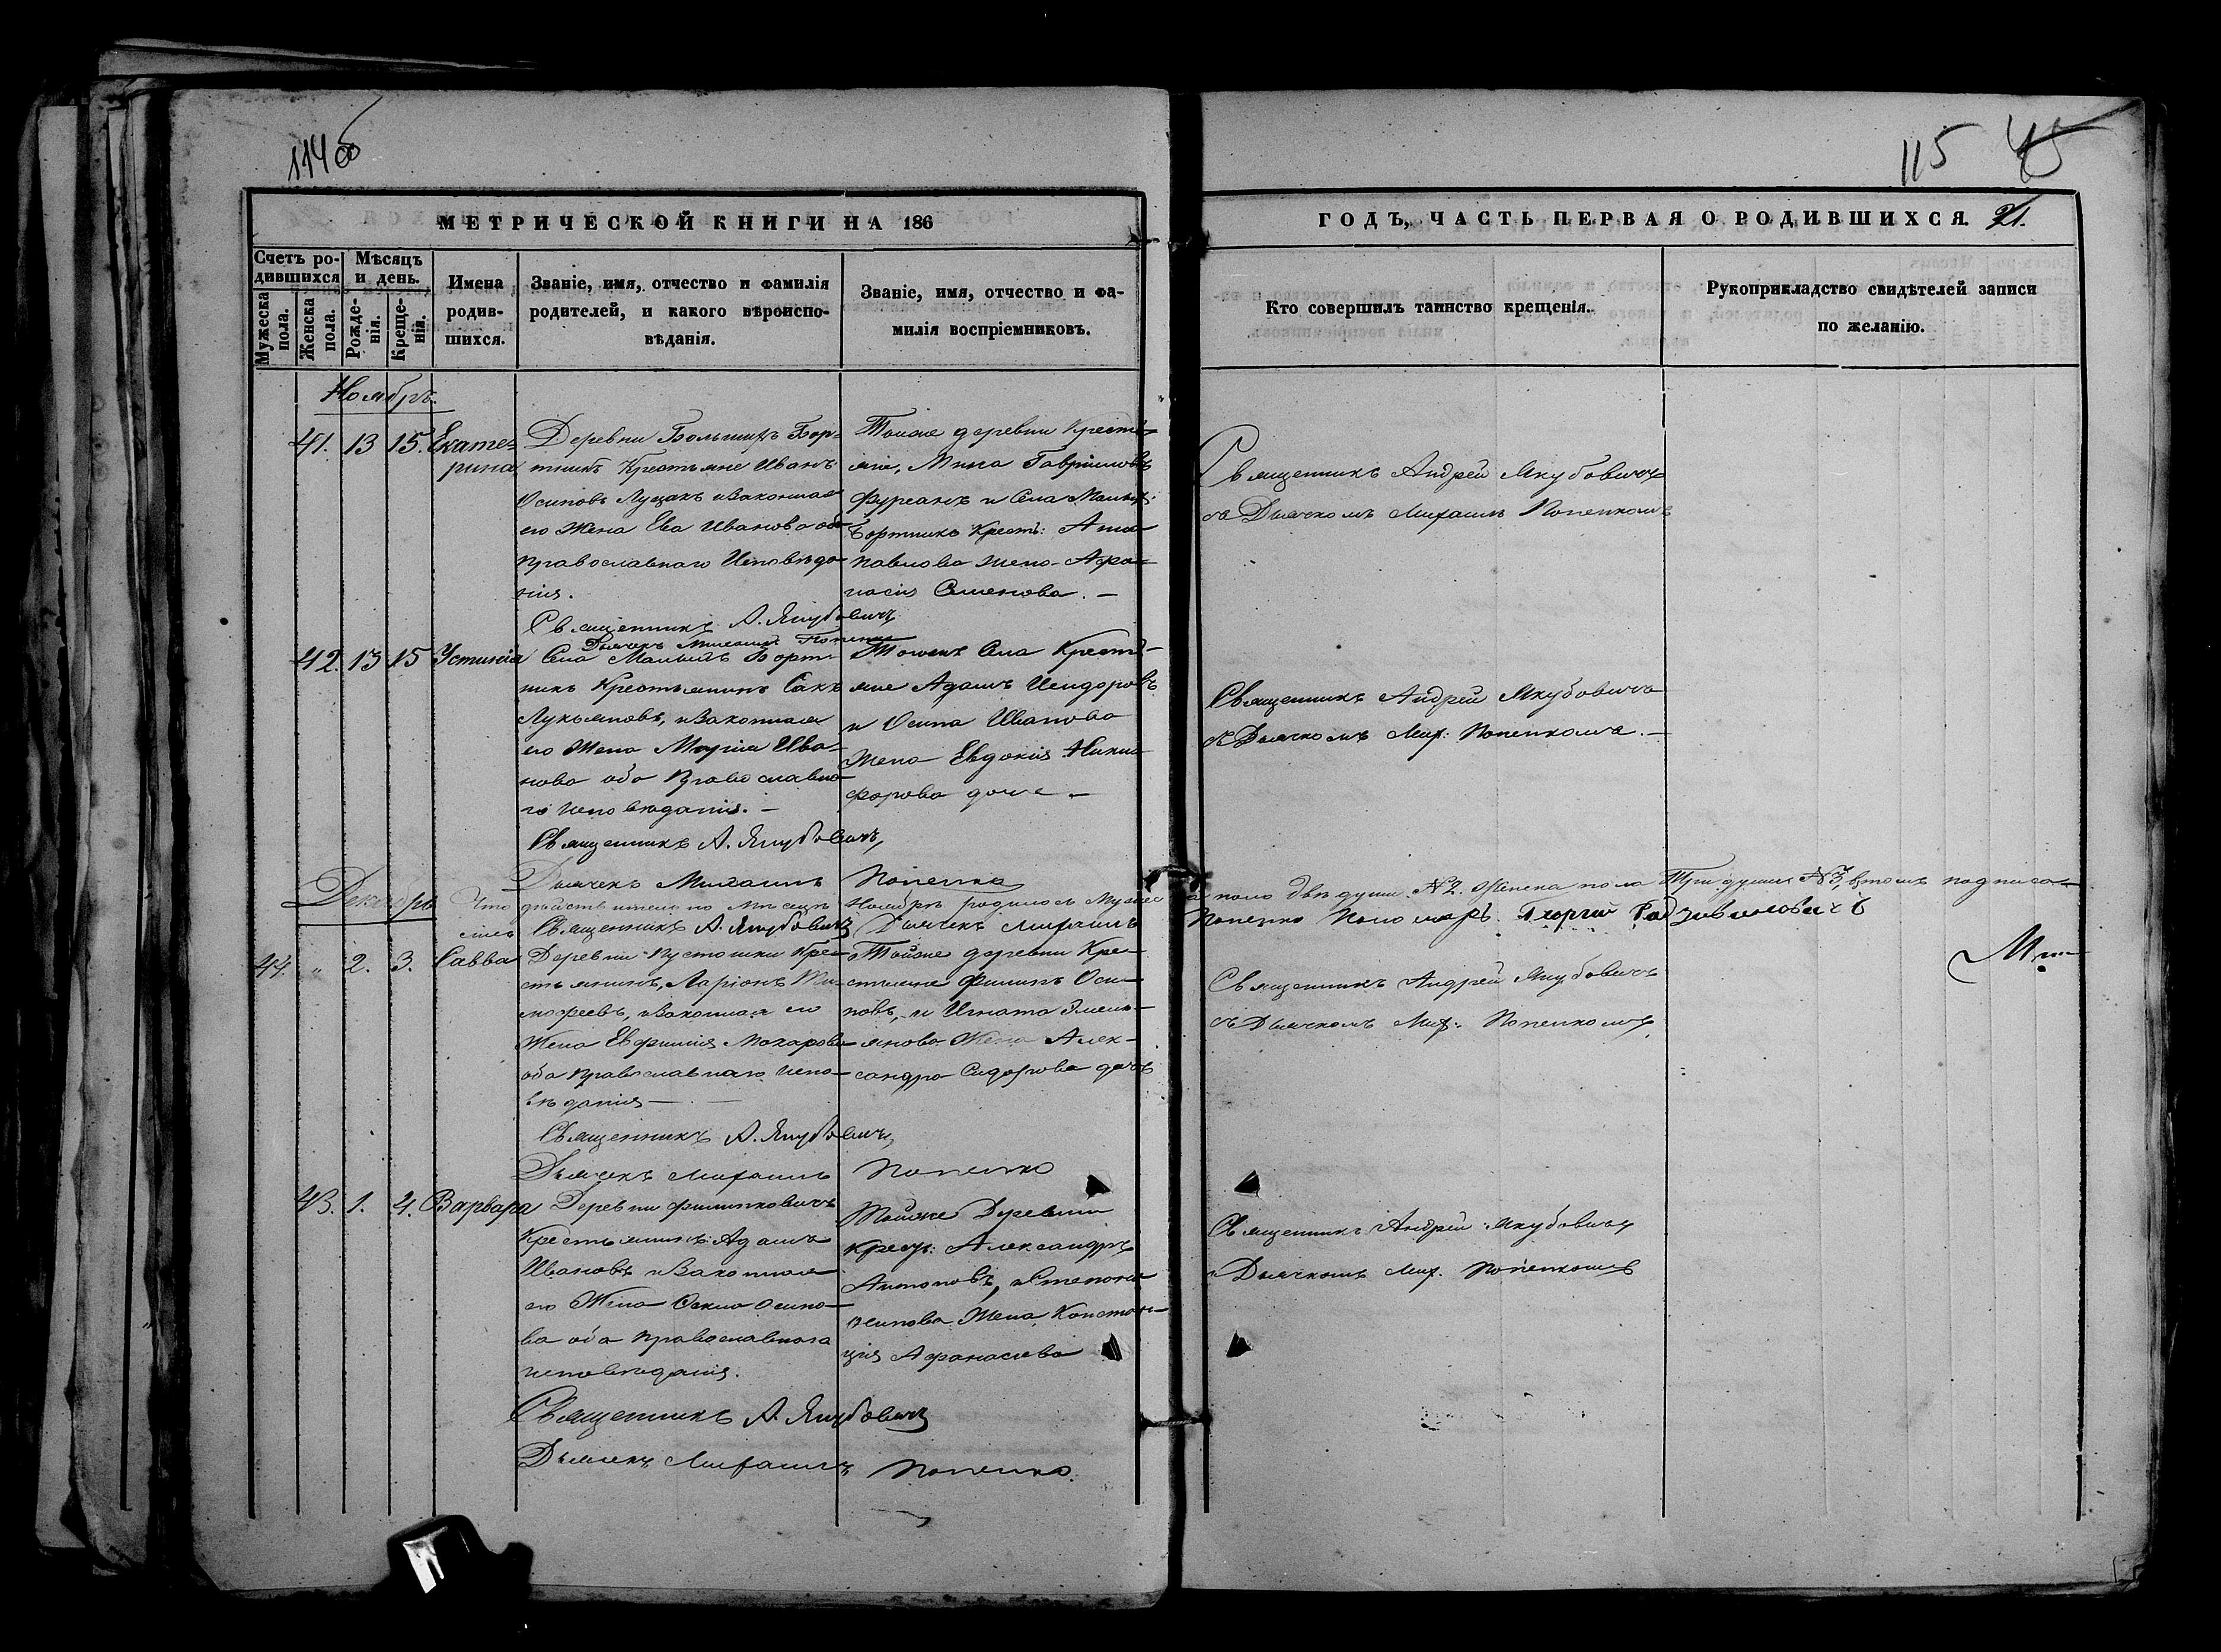 114 об
115 45
МЕТРИЧЕСКОЙ КНИГИ НА 186
ГОДЪ, ЧАСТЬ ПЕРВАЯ О РОДИВШИХСЯ. 21.
Счетъ ро-
дившихся
Мѣсяцъ
и день.
Мужеска
пола.
Женска
пола.
Рожде-
нія.
Креще-
нія.
Имена
родив-
шихся.
Званіе, имя, отчество и фамилія
родителей, и какого вѣроиспо-
вѣданія.
Званіе, имя, отчество и фа-
милія воспріемниковъ.
Кто совершилъ таинство крещенія.
Рукоприкладство свидѣтелей записи
по желанію.
Ноябрь.
41. 13 15. Екате-
рина
Деревни Большихъ Бор-
тникъ Крестьяне Иванъ
Осиповъ Луцакъ изаконная
его Жена Ева Иванова оба
православнаго Исповѣда-
нія.
Священникъ А. Якубовичъ
Дьячекъ Михаилъ Попенко
Тойже деревни Крестья-
не, Мина Гавриловъ
Фурсанъ и Села Малыхъ
Бортникъ Крест: Анна
Павлова жена Афа-
насія Семенова. —
Священникъ Андрей Якубовичъ
съ Дьячкомъ Михаиломъ Попенкомъ
42. 13 15 Устинія
Села Малыхъ Борт-
никъ Крестьянинъ Сакъ
Лукьяновъ, изаконная
его Жена Марія Ива-
нова оба Православна-
го Исповѣданія. —
Священникъ А. Якубовичъ,
Дьячекъ Михаилъ Попенко
Тогоже Села Крестья-
не Адамъ Исидоровъ
и Осипа Иванова
Жена Евдокія Ники-
форова дочь —
Священникъ Андрей Якубовичъ
съ Дьячкомъ Мих: Попенкомъ. —
Декабрь
Что дѣйствительно по Мѣсяцъ Ноябрь родилось Мужеска пола двѣ души №2. Женска пола Три души №3, втомъ подписа-
лись Священникъ А. Якубовичъ Дьячекъ Михаилъ Попенко Пономарь Георгій Радзивиловичъ
44. „ 2. 3. Савва
Деревни Пустошки Кре-
стьянинъ, Ларіонъ Ти-
мофеевъ, изаконная его
Жена Евфимія Макарова
оба Православнаго испо-
вѣданія —
Священникъ А. Якубовичъ,
Дьячекъ Михаилъ Попенко
Тойже деревни Кре-
стьяне Филипъ Оси-
повъ, и Игната Эмель-
янова Жена Алек-
сандра Сидорова дочь
Священникъ Андрей Якубовичъ
съ Дьячкомъ Мих: Попенкомъ,
43. 1. 4. Варвара
Деревни Филипковичъ
Крестьянинъ Адамъ
Ивановъ изаконная
его Жена Оекла Осипо-
ва оба Православнаго
исповѣданія.
Священникъ А. Якубовичъ
Дьячекъ Михаилъ Попенко.
Тойже Деревни
крест: Александръ
Антоновъ, и Степана
Осипова Жена Констан-
ція Афанасіева
Священникъ Андрей Якубовичъ
Дьячкомъ Мих. Попенкомъ